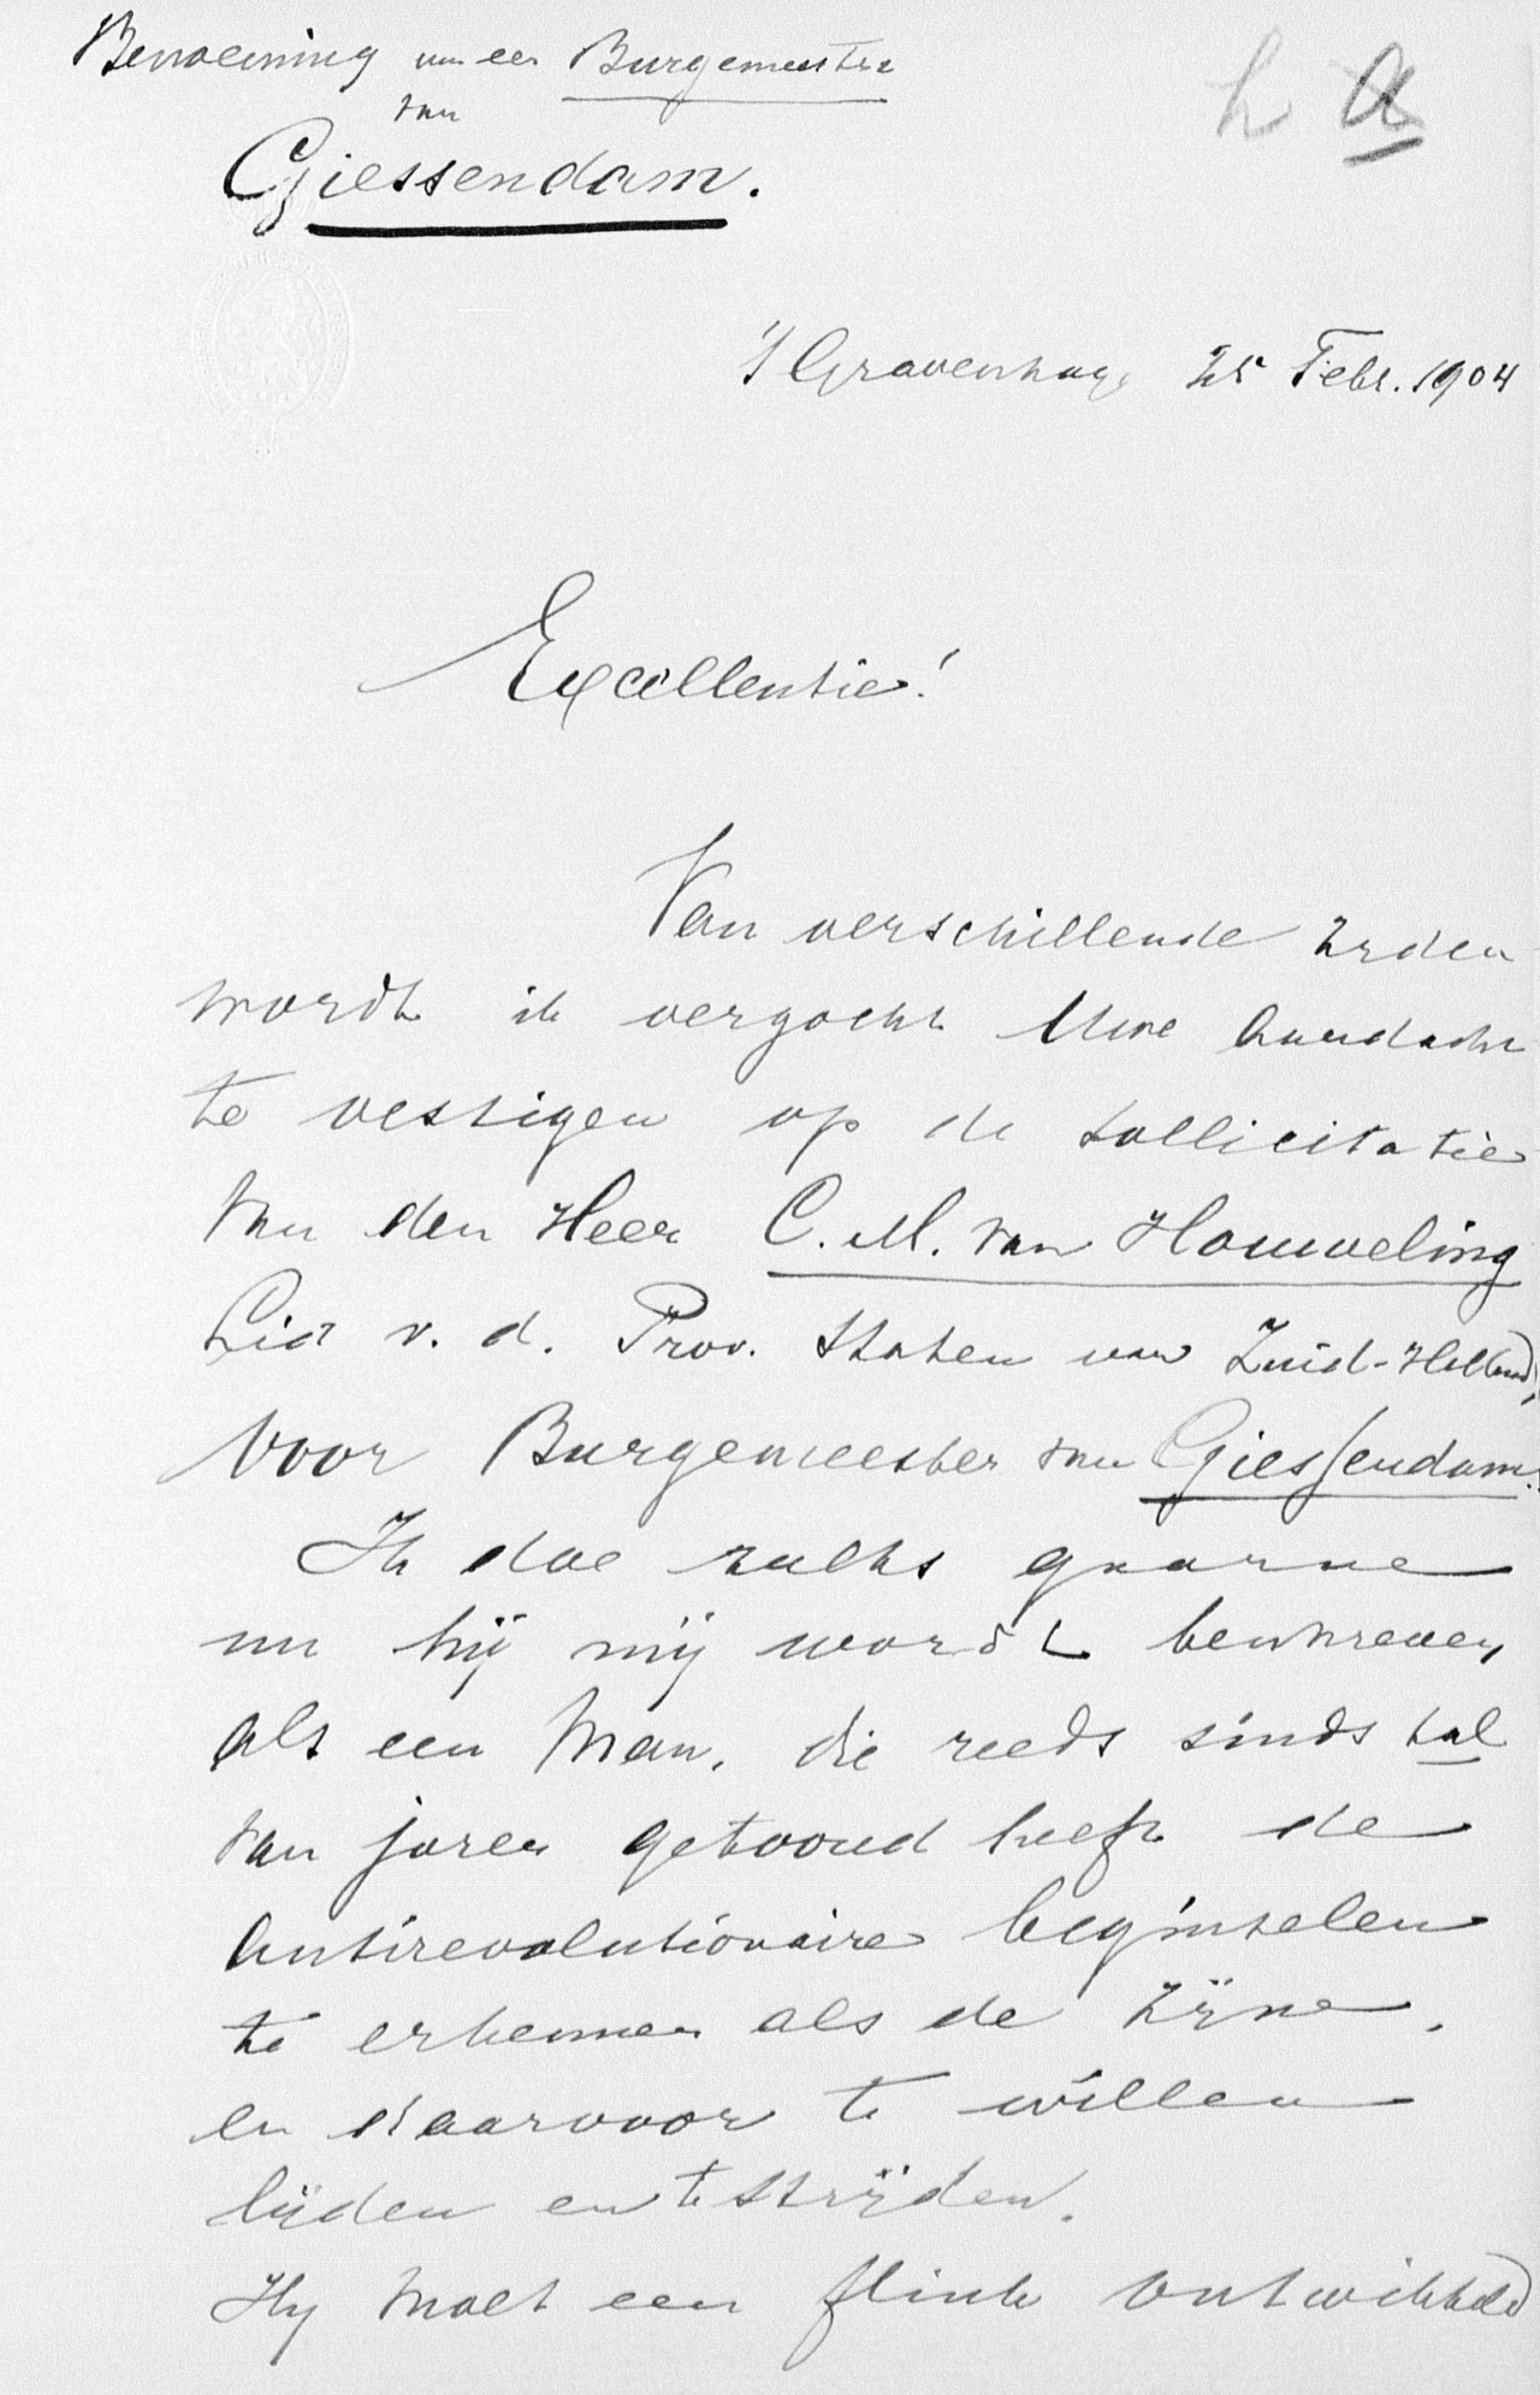 Benoeming van een Burgemeester
van
Giessendam.
h A
's Gravenhage 25 Febr. 1904
Excellentie!
Van verschillende zijden
wordt ik verzocht Uwe aandacht
te vestigen op de sollicitatie
van den Heer C. M. van Houweling
Lid v. d. Prov. Staten van Zuid-Holland,
voor Burgemeester van Giessendam.
Ik doe zulks gaarne
nu hij mij wordt beschreven
als een man, die reeds sinds tal
van jaren getoond heeft de
antirevolutionaire beginselen
te erkennen als de zijne,
en daarvoor te willen
lijden en te strijden.
Hij moet een flink ontwikkeld